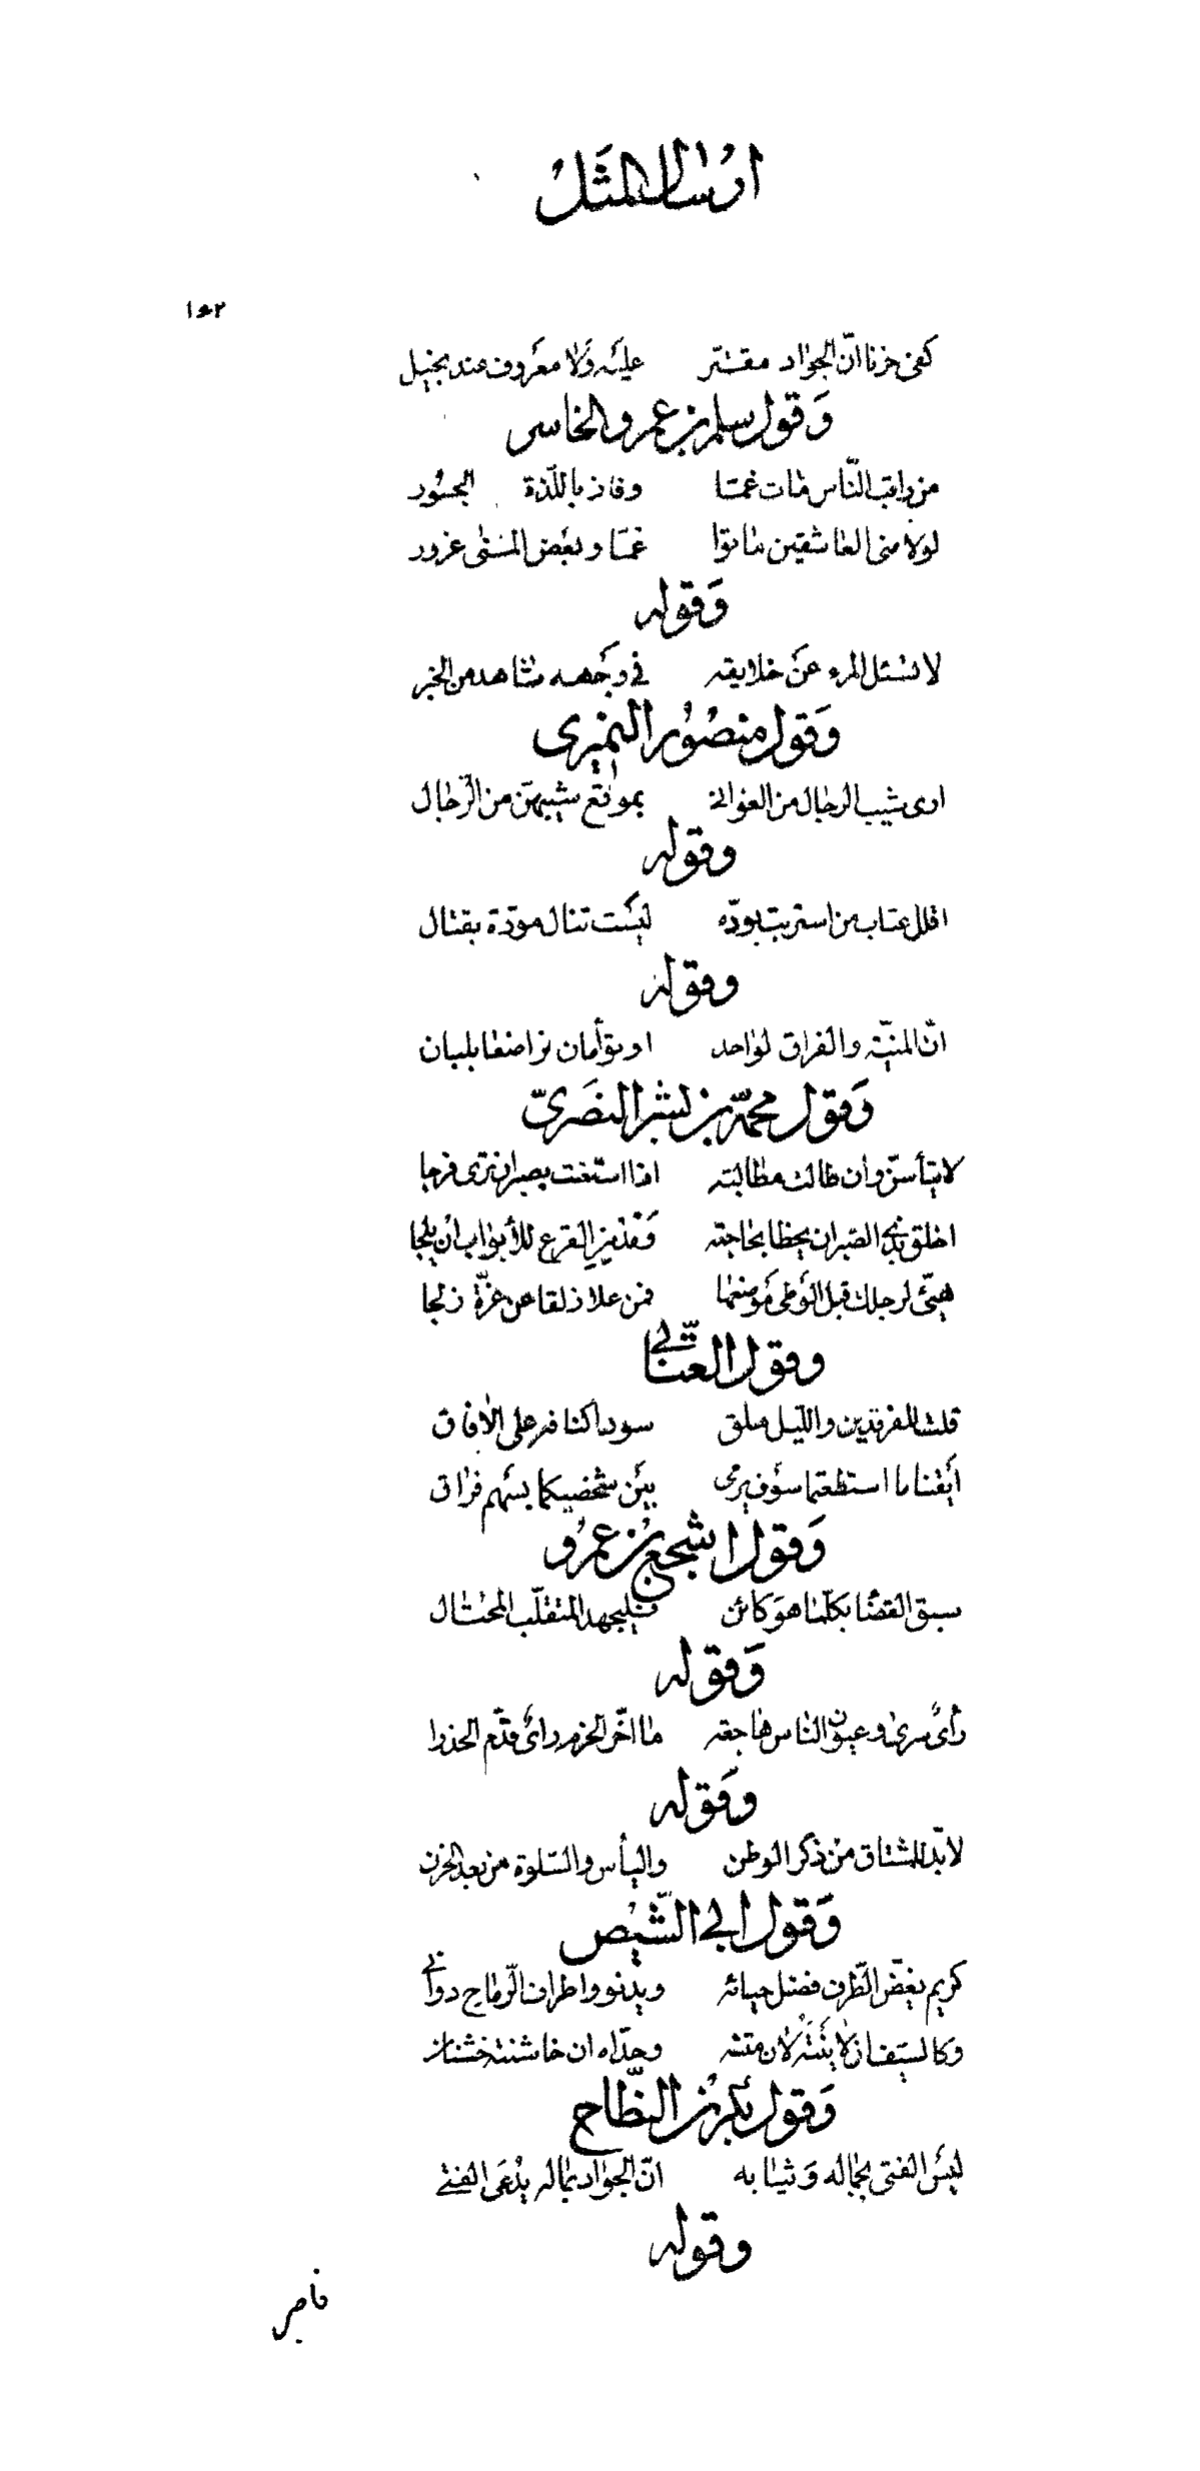 ارسال المثل
١٥٢
كفى حزنا انّ الجواد مقتّر عليه ولا معروف عند بخيل
وقول سلم بن عمرو الخاسر
من راقب النّاس مات غمّا وفاز باللّذة الجسور
لولا منى العاشقين ماتوا غمّا وبعض المنى غرور
وقوله
لا تسئل المرء عن خلايقه في وجهه شاهد من الخبر
وقول منصور النميرى
ارى شيب الرجال من الغوانى بمواقع شيبهنّ من الرّجال
وقوله
اقلل عتاب من استربت بودّه ليست تنال مودّة بقتال
وقوله
انّ المنيّة والفراق لواحد او توأمان تراضعا بلبان
وقول محمّد بن بشر البصرىّ
لا تيأسنّ وان طالت مطالبته اذا استعنت بصبر ان ترى فرجا
اخلق بذى الصّبر ان يحظا بحاجته ومدمن القرع للأبواب ان يلجا
هيّئ لرجلك قبل الوطى موضعها فمن علا زلقا عن غرّة زلجا
وقول العتّابى
قلت للفرقدين واللّيل ملق سود اكنافه على الافاق
أبقيا ما استطعتما سوف يرمى بين شخصيكما بسهم فراق
وقول اشجع بن عمرو
سبق القضا بكلّما هو كائن فليجهد المتقلّب المحتال
وقوله
رأى سرى وعيون الناس هاجعة ما اخّر الحزم رأى قدّم الحذرا
وقوله
لا بدّ للمشتاق من ذكر الوطن واليأس والسّلوة من بعد الحزن
وقول ابى الشّيص
كريم يغضّ الطّرف فضل حيائه ويدنو واطراف الرّماح دوانى
وكالسيف ان لاينته لان متنه وحدّاه ان خاشنته خشنان
وقول بكر بن النطّاح
ليس الفتى بجماله وثيابه انّ الجواد بماله يدعى الفتى
وقوله